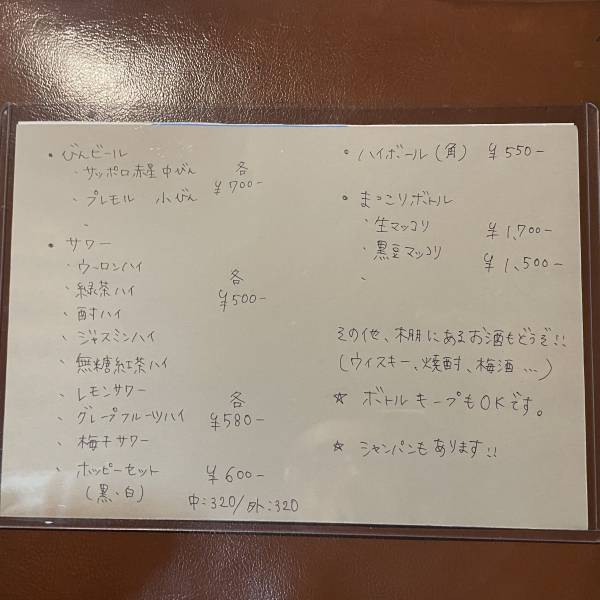 ・びんビール
・サッポロ赤星中びん 各
・プレモル 小びん ¥700-
・
・サワー
・ウーロンハイ
・緑茶ハイ 各
・酎ハイ ¥500-
・ジャスミンハイ
・無糖紅茶ハイ
・レモンサワー 各
・グレープフルーツハイ ¥580-
・梅干サワー
・ホッピーセット ¥600-
(黒・白) 中:320/外:320
・ハイボール(角) ¥550-
・まっこりボトル
・生マッコリ ¥1,700-
・黒豆マッコリ ¥1,500-
・
その他、棚にあるお酒もどうぞ!!
(ウィスキー、焼酎、梅酒...)
☆ ボトルキープもOKです。
☆ シャンパンもあります!!